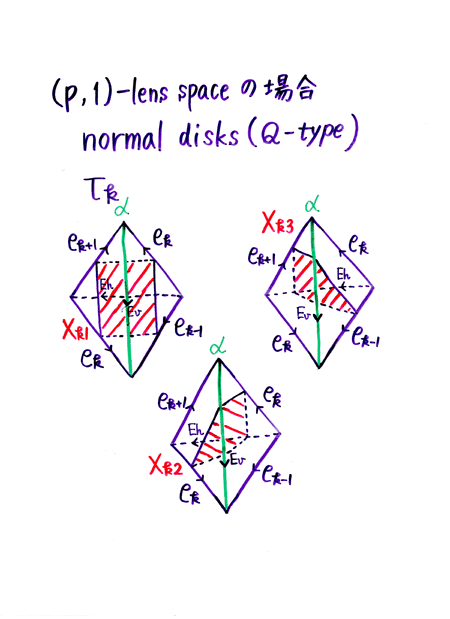 (p,1)-lens spaceの場合
normal disks(Q-type)
Tk
α
ek+1
ek
Eh
Ev
Xk1
ek
ek-1
α
Xk3
ek+1
ek
Eh
Ev
ek
ek-1
α
ek+1
ek
Eh
Ev
Xk2
ek
ek-1